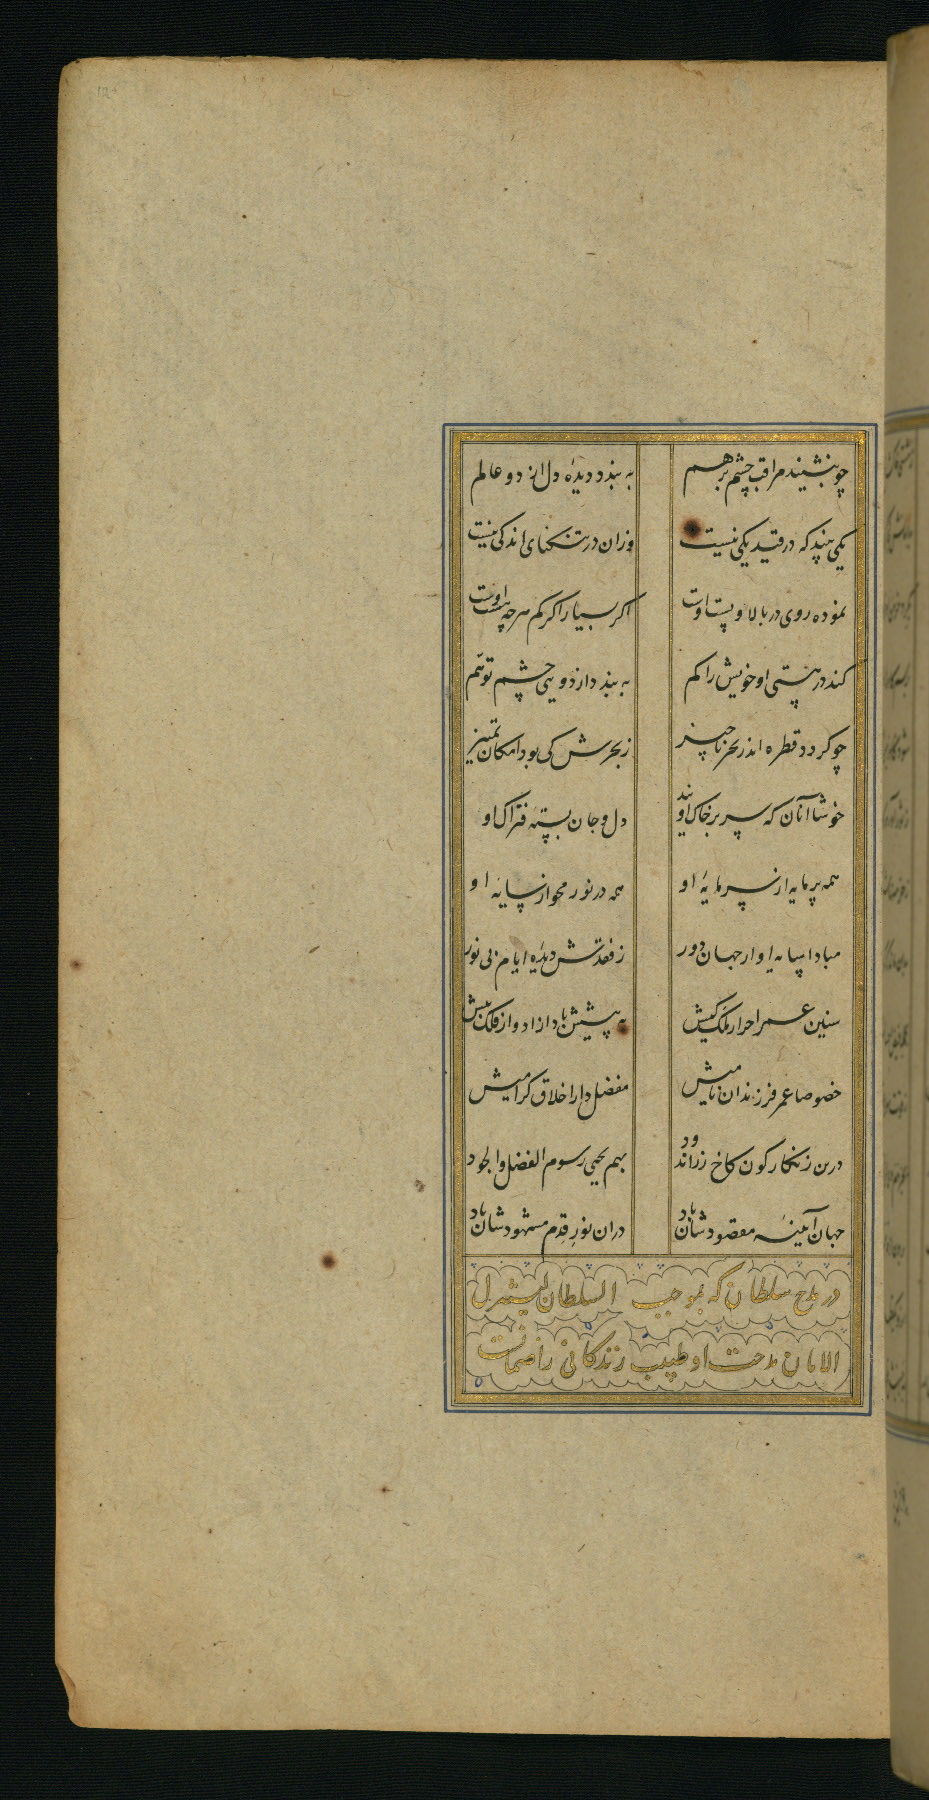 چو بنشیند مراقب چشم بر هم	به بندد دیدهٔ دل از دو عالم
یکی بیند که در قید یکی نیست	وزان در تنگنای اندکی نیست
نموده روی در بالا و پست اوست	اکر بسیار اکر کم هرچه هست اوست
کند در هستی او خویش را کم	به بندد از دویی چشم توهم
چو کردد قطره اندر بحر ناچیز	ز بحرش کی بود امکان تمییز
خوشا آنان که سر بر خاک اویند	دل و جان بسته فتراک او
همه پر مایه از سرمایهٔ او	همه در نور محو از سایهٔ او
مبادا سایه او از جهان دور	ز فقدش دیدهٔ ایام بی نور
سنین عمر احرار ملک کیش	به پیشش باد از ادوار فلک بیش
خصوصا عمر فرزندان نامیش	مفضل دار اخلاق کرامیش
درین زنکارکون کاخ زراندود	بهم یحیی رسوم الفضل والجود
جهان آیینه مقصودشان باد	دران نور قدم مشهودشان باد
در مدح سلطان که بموجب السلطان
الامان مدحت او طیب زندکانی را ضمانست